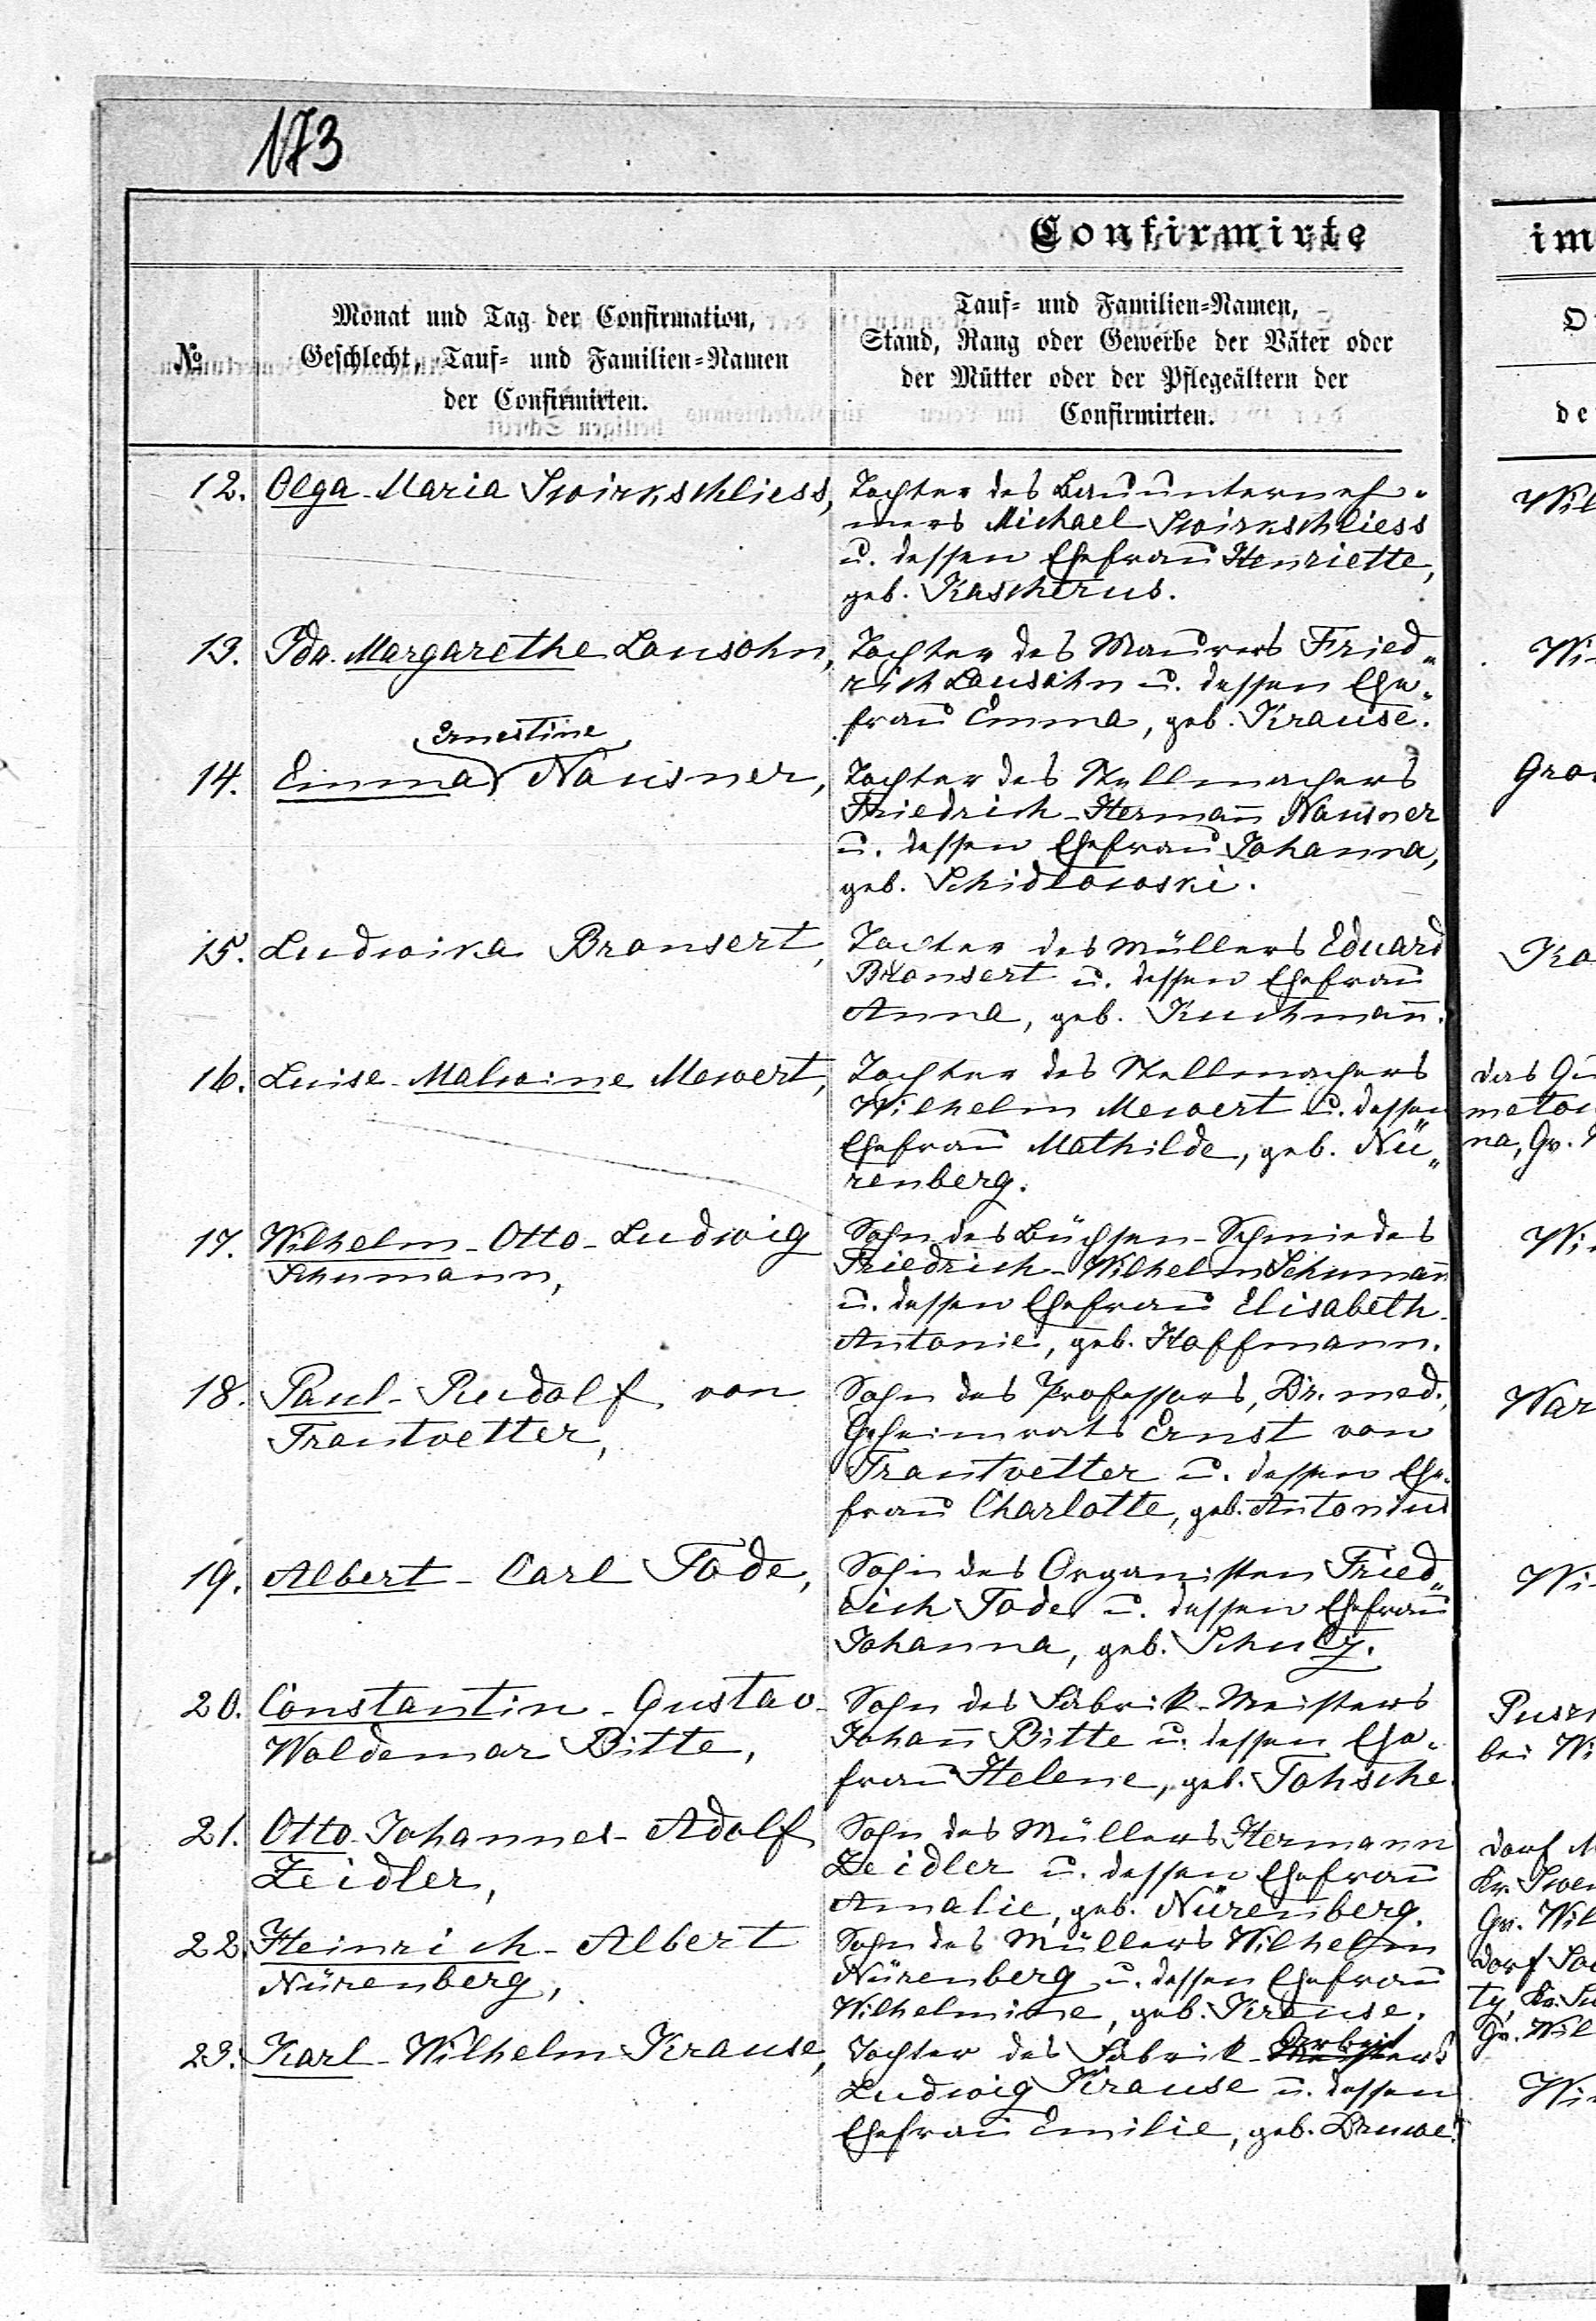 173
Confirmirte
№
Monat und Tag der Confirmation,
Geschlecht, Tauf- und Familien-Namen
der Confirmirten.
Tauf- und Familien-Namen,
Stand, Rang oder Gewerbe der Väter oder
der Mütter oder der Pflegeältern der
Confirmirten.
12. Olga-Maria Swirkschliess,
Tochter des Bauunterneh-
mers Michael Swirkschliess
u. dessen Ehefrau Henriette,
geb. Kascherus.
13. Ida-Margarethe Lausohn,
Tochter des Maurers Fried-
rich Lausohn u. dessen Ehe-
frau Emma, geb. Krause.
Ernestine
14. Emma Nausner,
Tochter des Stellmachers
Friedrich-Hermann Nausner
u. dessen Ehefrau Johanna,
geb. Schidlowski.
15. Ludwika Bronsert,
Tochter des Müllers Eduard
Bronsert u. dessen Ehefrau
Anna, geb. Kuchmann.
16. Luise-Malwine Mewert,
Tochter des Stellmachers
Wilhelm Mewert u. dessen
Ehefrau Mathilde, geb. Nü-
renberg.
17. Wilhelm-Otto-Ludwig
Schumann,
Sohn des Büchsen-Schmiedes
Friedrich-Wilhelm Schumann
u. dessen Ehefrau Elisabeth-
Antonie, geb. Hoffmann.
18. Paul-Rudolf von
Trautvetter,
Sohn des Professors, Dr. med.,
Geheimrats Ernst von
Trautvetter u. dessen Ehe-
frau Charlotte, geb. Antonius
19. Albert-Carl Tode,
Sohn des Organisten Fried-
rich Tode u. dessen Ehefrau
Johanna, geb. Schulz.
20. Constantin-Gustav-
Woldemar Bitte,
Sohn des Fabrik-Meisters
Johann Bitte u. dessen Ehe-
frau Helene, geb. Tohsche.
21. Otto-Johannes-Adolf
Zeidler,
Sohn des Müllers Hermann
Zeidler u. dessen Ehefrau
Amalie, geb. Nürenberg.
22. Heinrich-Albert
Nürenberg,
Sohn des Müllers Wilhelm
Nürenberg u. dessen Ehefrau
Wilhelmine, geb. Krause.
23. Karl-Wilhelm Krause,
Tochter des Fabrik-Arbeiters
Ludwig Krause u. dessen
Ehefrau Emilie, geb. Druwe.
im
de
Wil
Wi
Gro
Ko
das Gu
meton
na, Gv.
Wi
War
Wi
bei Wi
Dorf M
Gv. Wil
Dorf
Gv. Wil
Wi